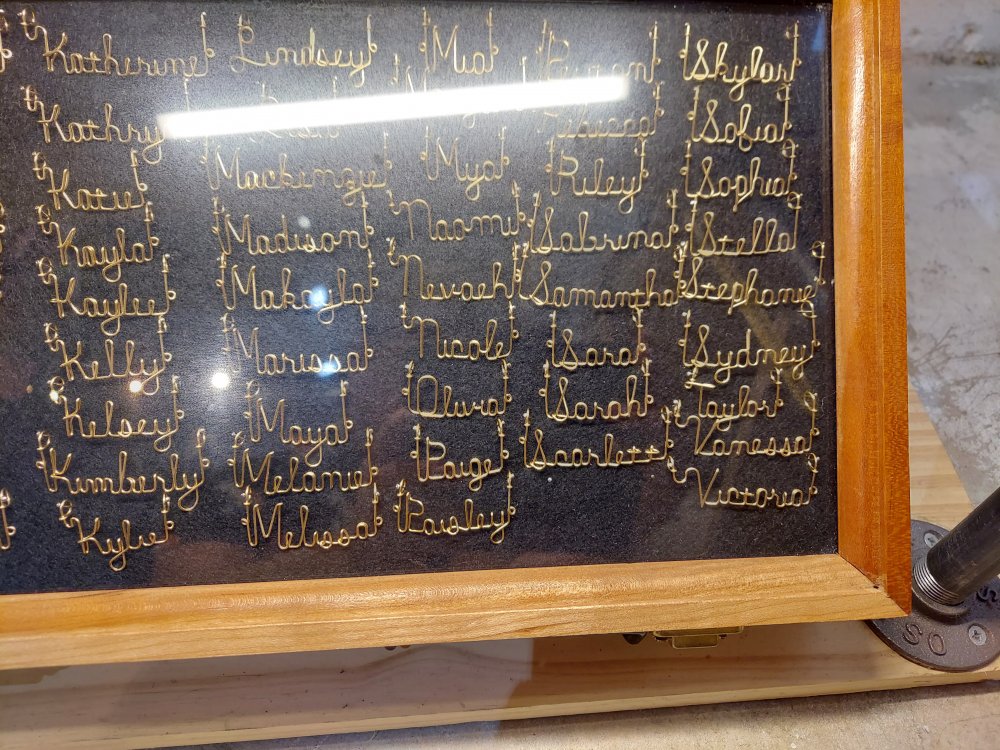 Katherine
Kathry
Katie
Kayla
Kaylee
Kelly
Kelsey
Kimberly
Kylie
Lindsey
Mackenzie
Madison
Makayla
Marissa
Maya
Melanie
Melissa
Mia
Mya
Naomi
Nevaeh
Nicole
Olivia
Paige
Paisley
Rebecca
Riley
Sabrina
Samantha
Sara
Sarah
Scarlett
Skylar
Sofia
Sophia
Stella
Stephanie
Sydney
Taylor
Vanessa
Victoria
SO